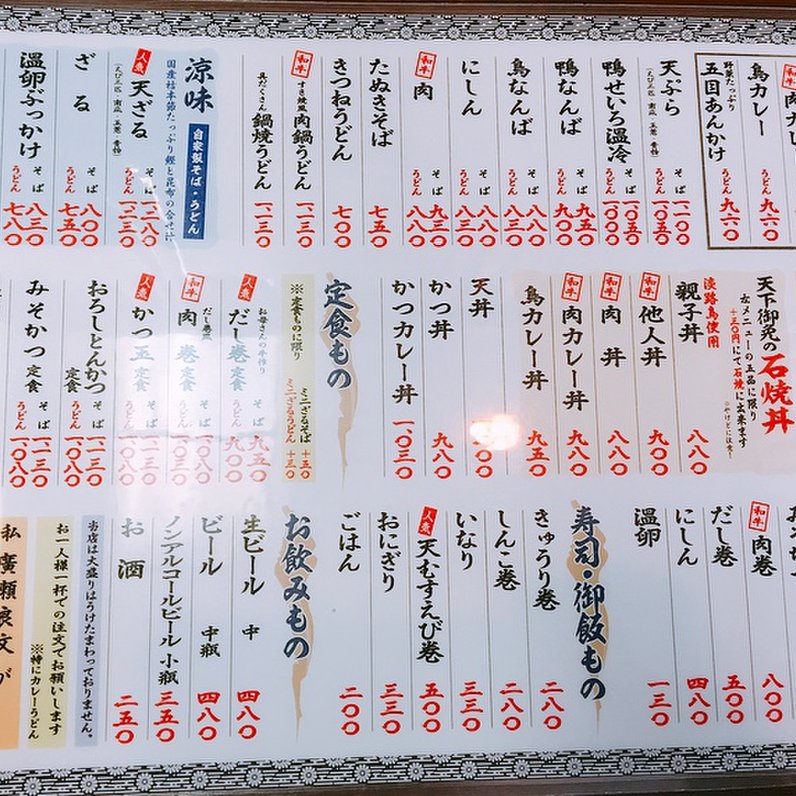 鳥カレー うどん 九六〇
野菜たっぷり
五目あんかけ うどん 九六〇
天ぷら
そば 一一〇〇
うどん 一〇五〇
鴨せいろ温冷
そば 一〇五〇
うどん 一〇〇〇
鴨なんば
そば 九五〇
うどん 九〇〇
鳥なんば
そば 八八〇
うどん 八三〇
にしん
そば 八八〇
うどん 八三〇
和牛 肉
そば 九三〇
うどん 八八〇
たぬきそば 七五〇
きつねうどん 七〇〇
和牛 すき焼風 肉鍋うどん 一一三〇
具だくさん 鍋焼うどん 一一三〇
涼味 自家製そば・うどん
国産枯本節たっぷり鰹と昆布の合せ汁
人気 天ざる
そば 一二八〇
うどん 一二三〇
ざる
そば 八〇〇
うどん 七五〇
温卵ぶっかけ
そば 八三〇
うどん 七八〇
天下御免の石焼丼
左メニューの五品に限り
+三〇円にて石焼に出来ます
※やけどに注意!
淡路鳥使用
親子丼 八八〇
和牛 他人丼 九〇〇
和牛 肉丼 八八〇
和牛 肉カレー丼 九八〇
鳥カレー丼 九五〇
天丼
かつ丼 九八〇
かつカレー丼 一〇三〇
定食もの
※定食ものに限り
ミニざるそば +一五〇
ミニざるうどん +一三〇
人気 お母さんの手作り だし巻定食
そば 九五〇
うどん 九〇〇
和牛 だし巻風 肉巻定食
そば 一〇八〇
人気 かつ玉定食
そば 一一三〇
うどん 一〇八〇
おろしとんかつ定食
そば 一一三〇
うどん 一〇八〇
みそかつ定食
そば 一一三〇
うどん 一〇八〇
和牛 肉巻 八〇〇
だし巻 五〇〇
にしん 四八〇
温卵 一三〇
寿司・御飯もの
きゅうり巻 二八〇
しんこ巻 二八〇
いなり 三三〇
人気 天むすえび巻 五〇〇
おにぎり 三三〇
ごはん 二〇〇
お飲みもの
生ビール 中 四八〇
ビール 中瓶 四八〇
ノンアルコールビール 小瓶 三五〇
お酒 二五〇
当店は大盛りはうけたまわっておりません。
お一人様一杯での注文でお願いします
※特にカレーうどん
私廣瀬哀文が